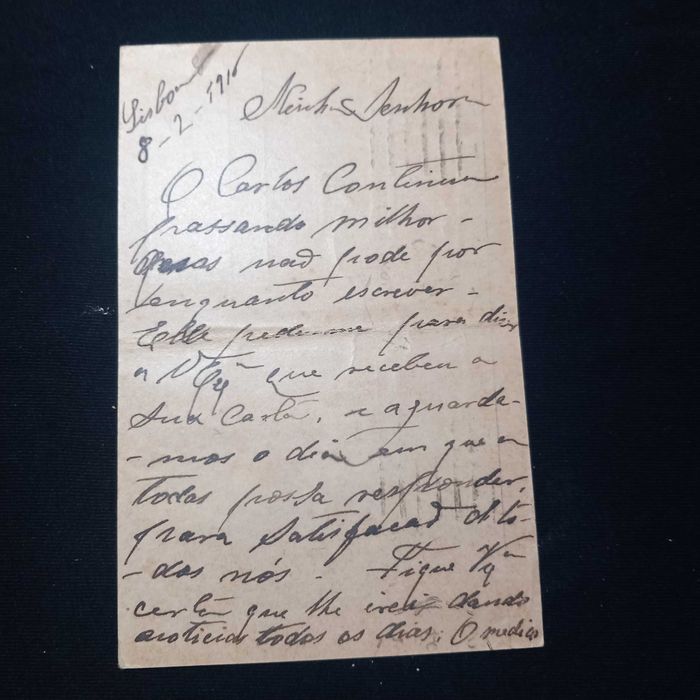 Lisboa
8-2-1916
Minha Senhora
O Carlos Continua
passando milhor-
mas naõ pode por
enquanto escrever-
Elle pediu-me para dizer
a V Exª que recebeu a
sua carta, e aguarda-
-mos o dia em que a
todas possa responder,
para satisfacaõ de to-
-dos nós. Fique Vª
certa que lhe irei dando
noticias todos os dias. O medico